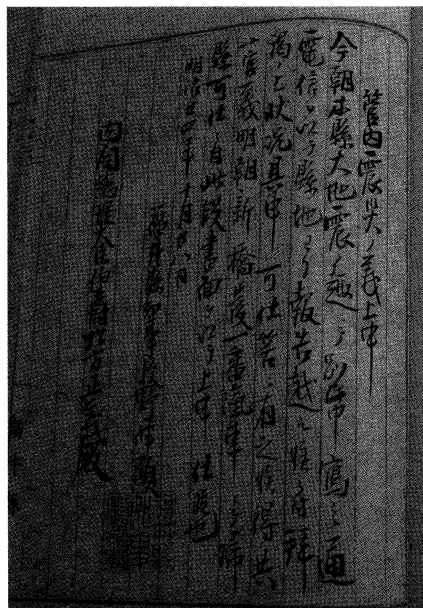 管内震災ノ義上申
今朝本縣大地震ノ趣ヲ別帋寫之通
電信ヲ以テ縣地ヨリ報告越候ニ付
状況具申可仕筈ニ有之候得共
官義明朝新橋發一番滊車ニテ歸
縣可仕ニ付此段書面ヲ以テ上申仕候也
明治廿四年十月廿八日
内閣總理大臣伯爵松方正義殿